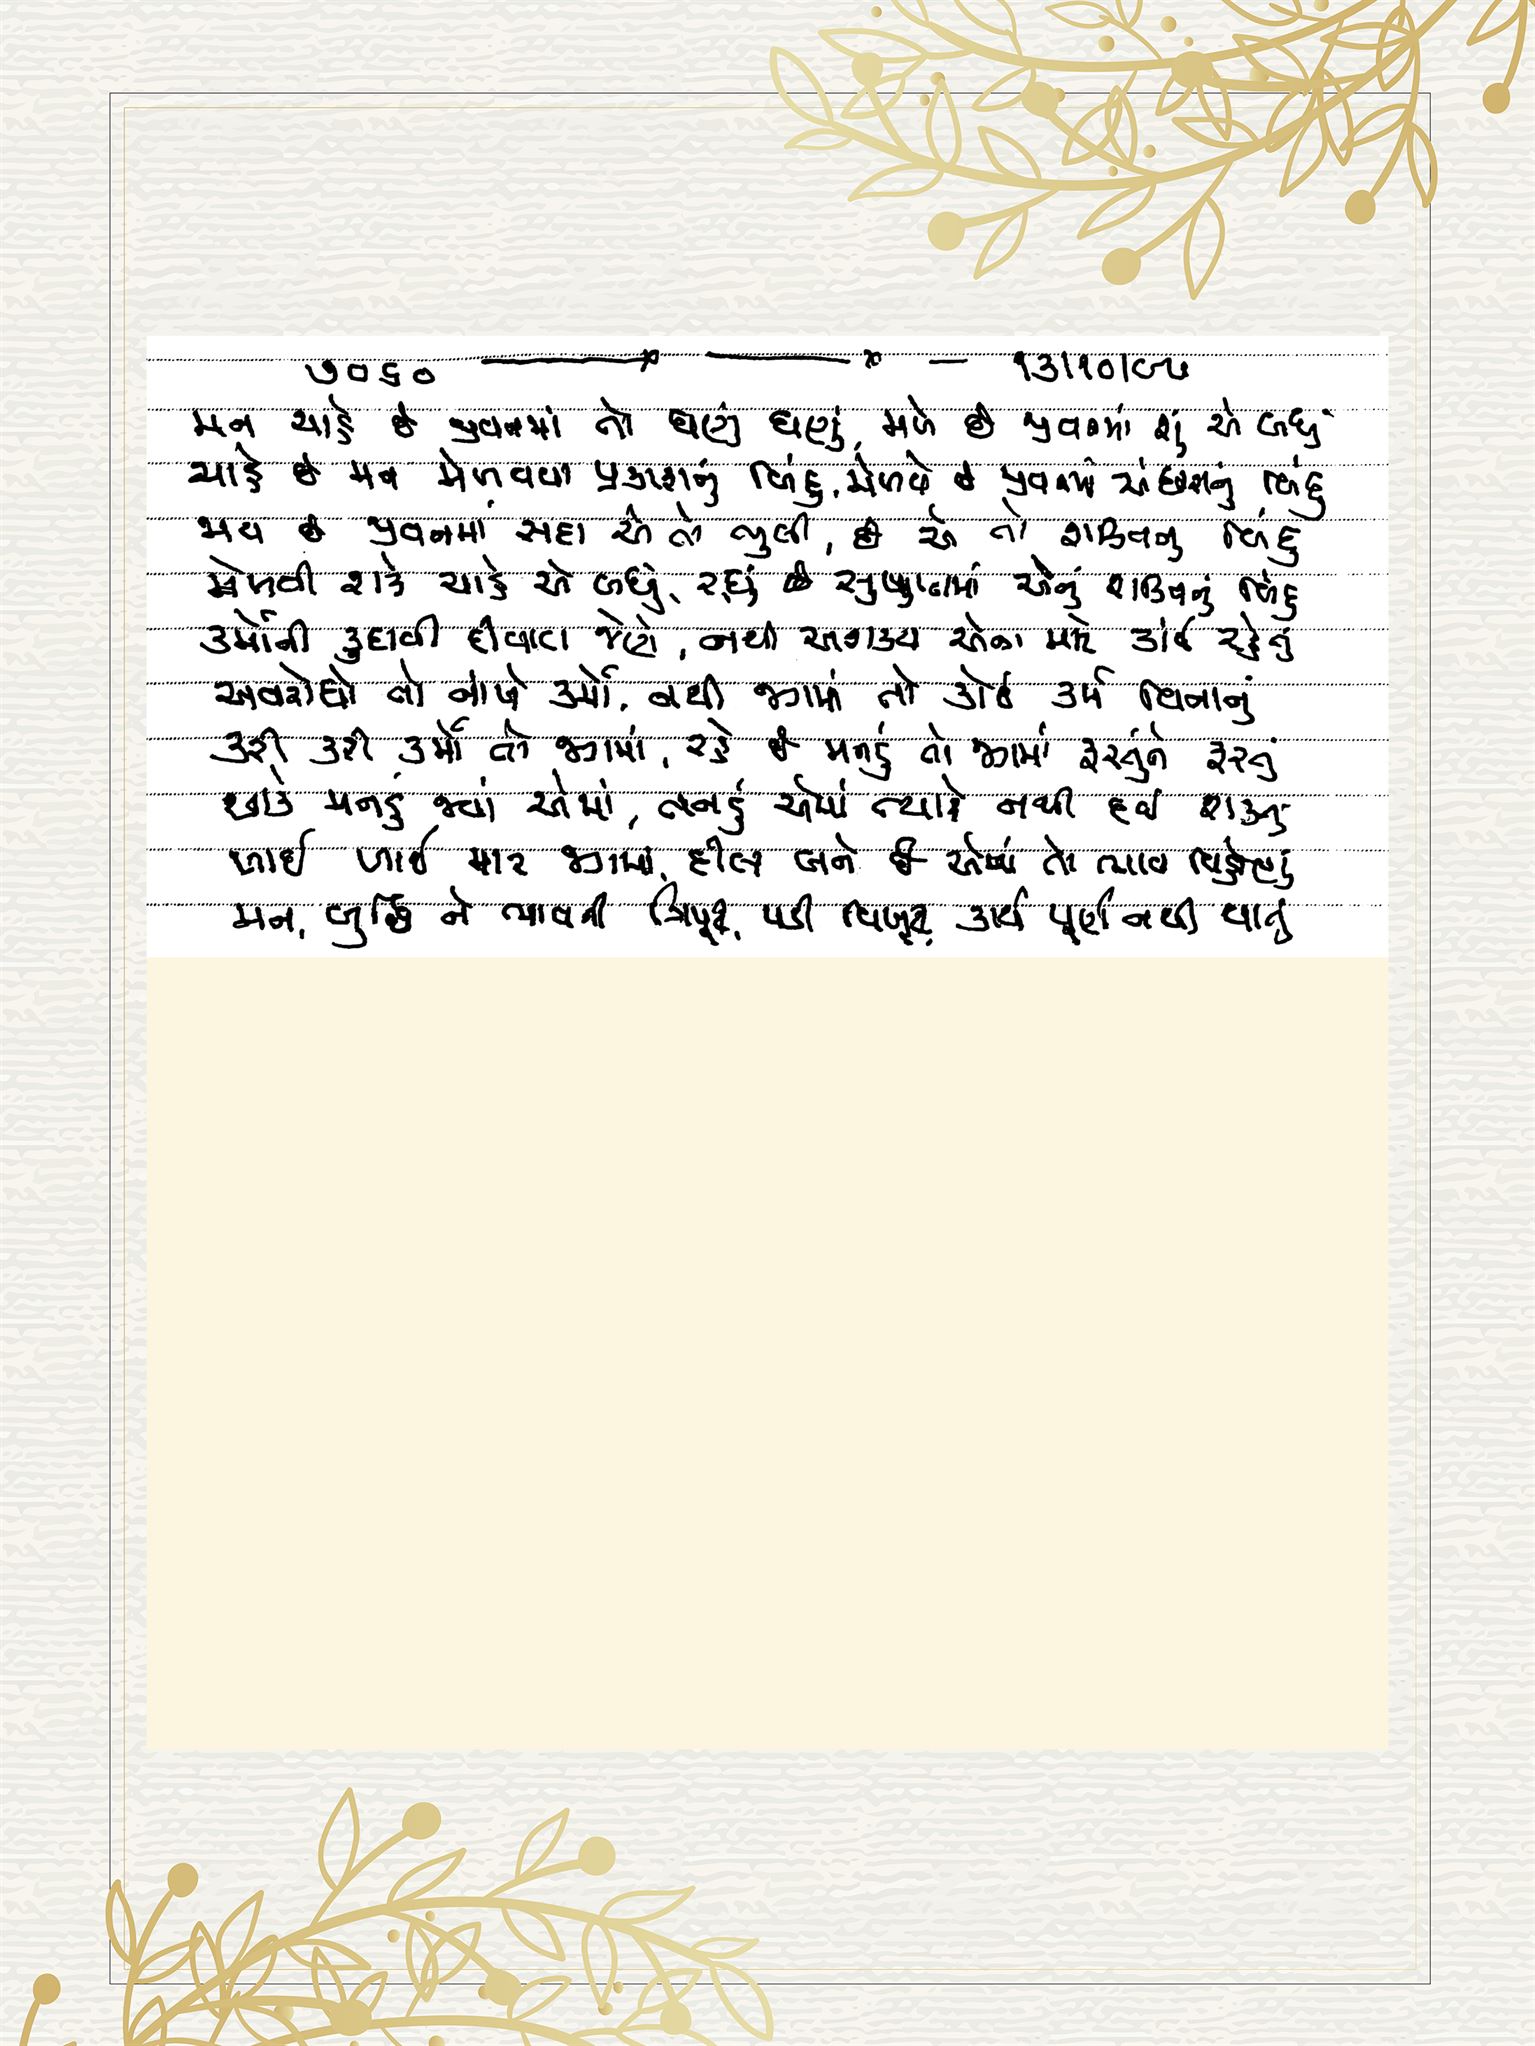 ૭૦૬૦ ૧૩/૧૦/૯૭
મન ચાહે છે જીવનમાં તો ઘણું ઘણું, મળે છે જીવનમાં શું એ બધું
ચાહે છે મન મેળવવા પ્રકાશનું બિંદુ, મેળવે છે જીવનમાં અંધારાનું બિંદુ
જાય છે જીવનમાં સદા એ તો ભુલી, છે એ તો શક્તિનું બિંદુ
મેળવી શકે ચાહે એ બધું, રહ્યું છે સુષુપ્તમાં એનું શક્તિનું બિંદુ
કર્મોની કુદાવી દીવાલ જેણે, નથી અશક્ય એના માટે કાંઈ રહેતું
અવરોધો તો નાંખે કર્મો, નથી જગમાં તો કોઈ કર્મ વિનાનું
કરી કરી કર્મો તો જગમાં, રહે છે મનડું તો જગમાં ફરતુંને ફરતું
થાકે મનડું જ્યાં એમાં, તનડું એમાં ત્યારે નથી દઈ શકતું
ખાઈ ખાઈ માર જગમાં, દીલ બને છે એમાં તો ભાવ વિહોણું
મન, બુદ્ધિ ને ભાવની ત્રિપૂટી, પડી વિખૂટી, કાર્ય પૂર્ણ નથી થાતું